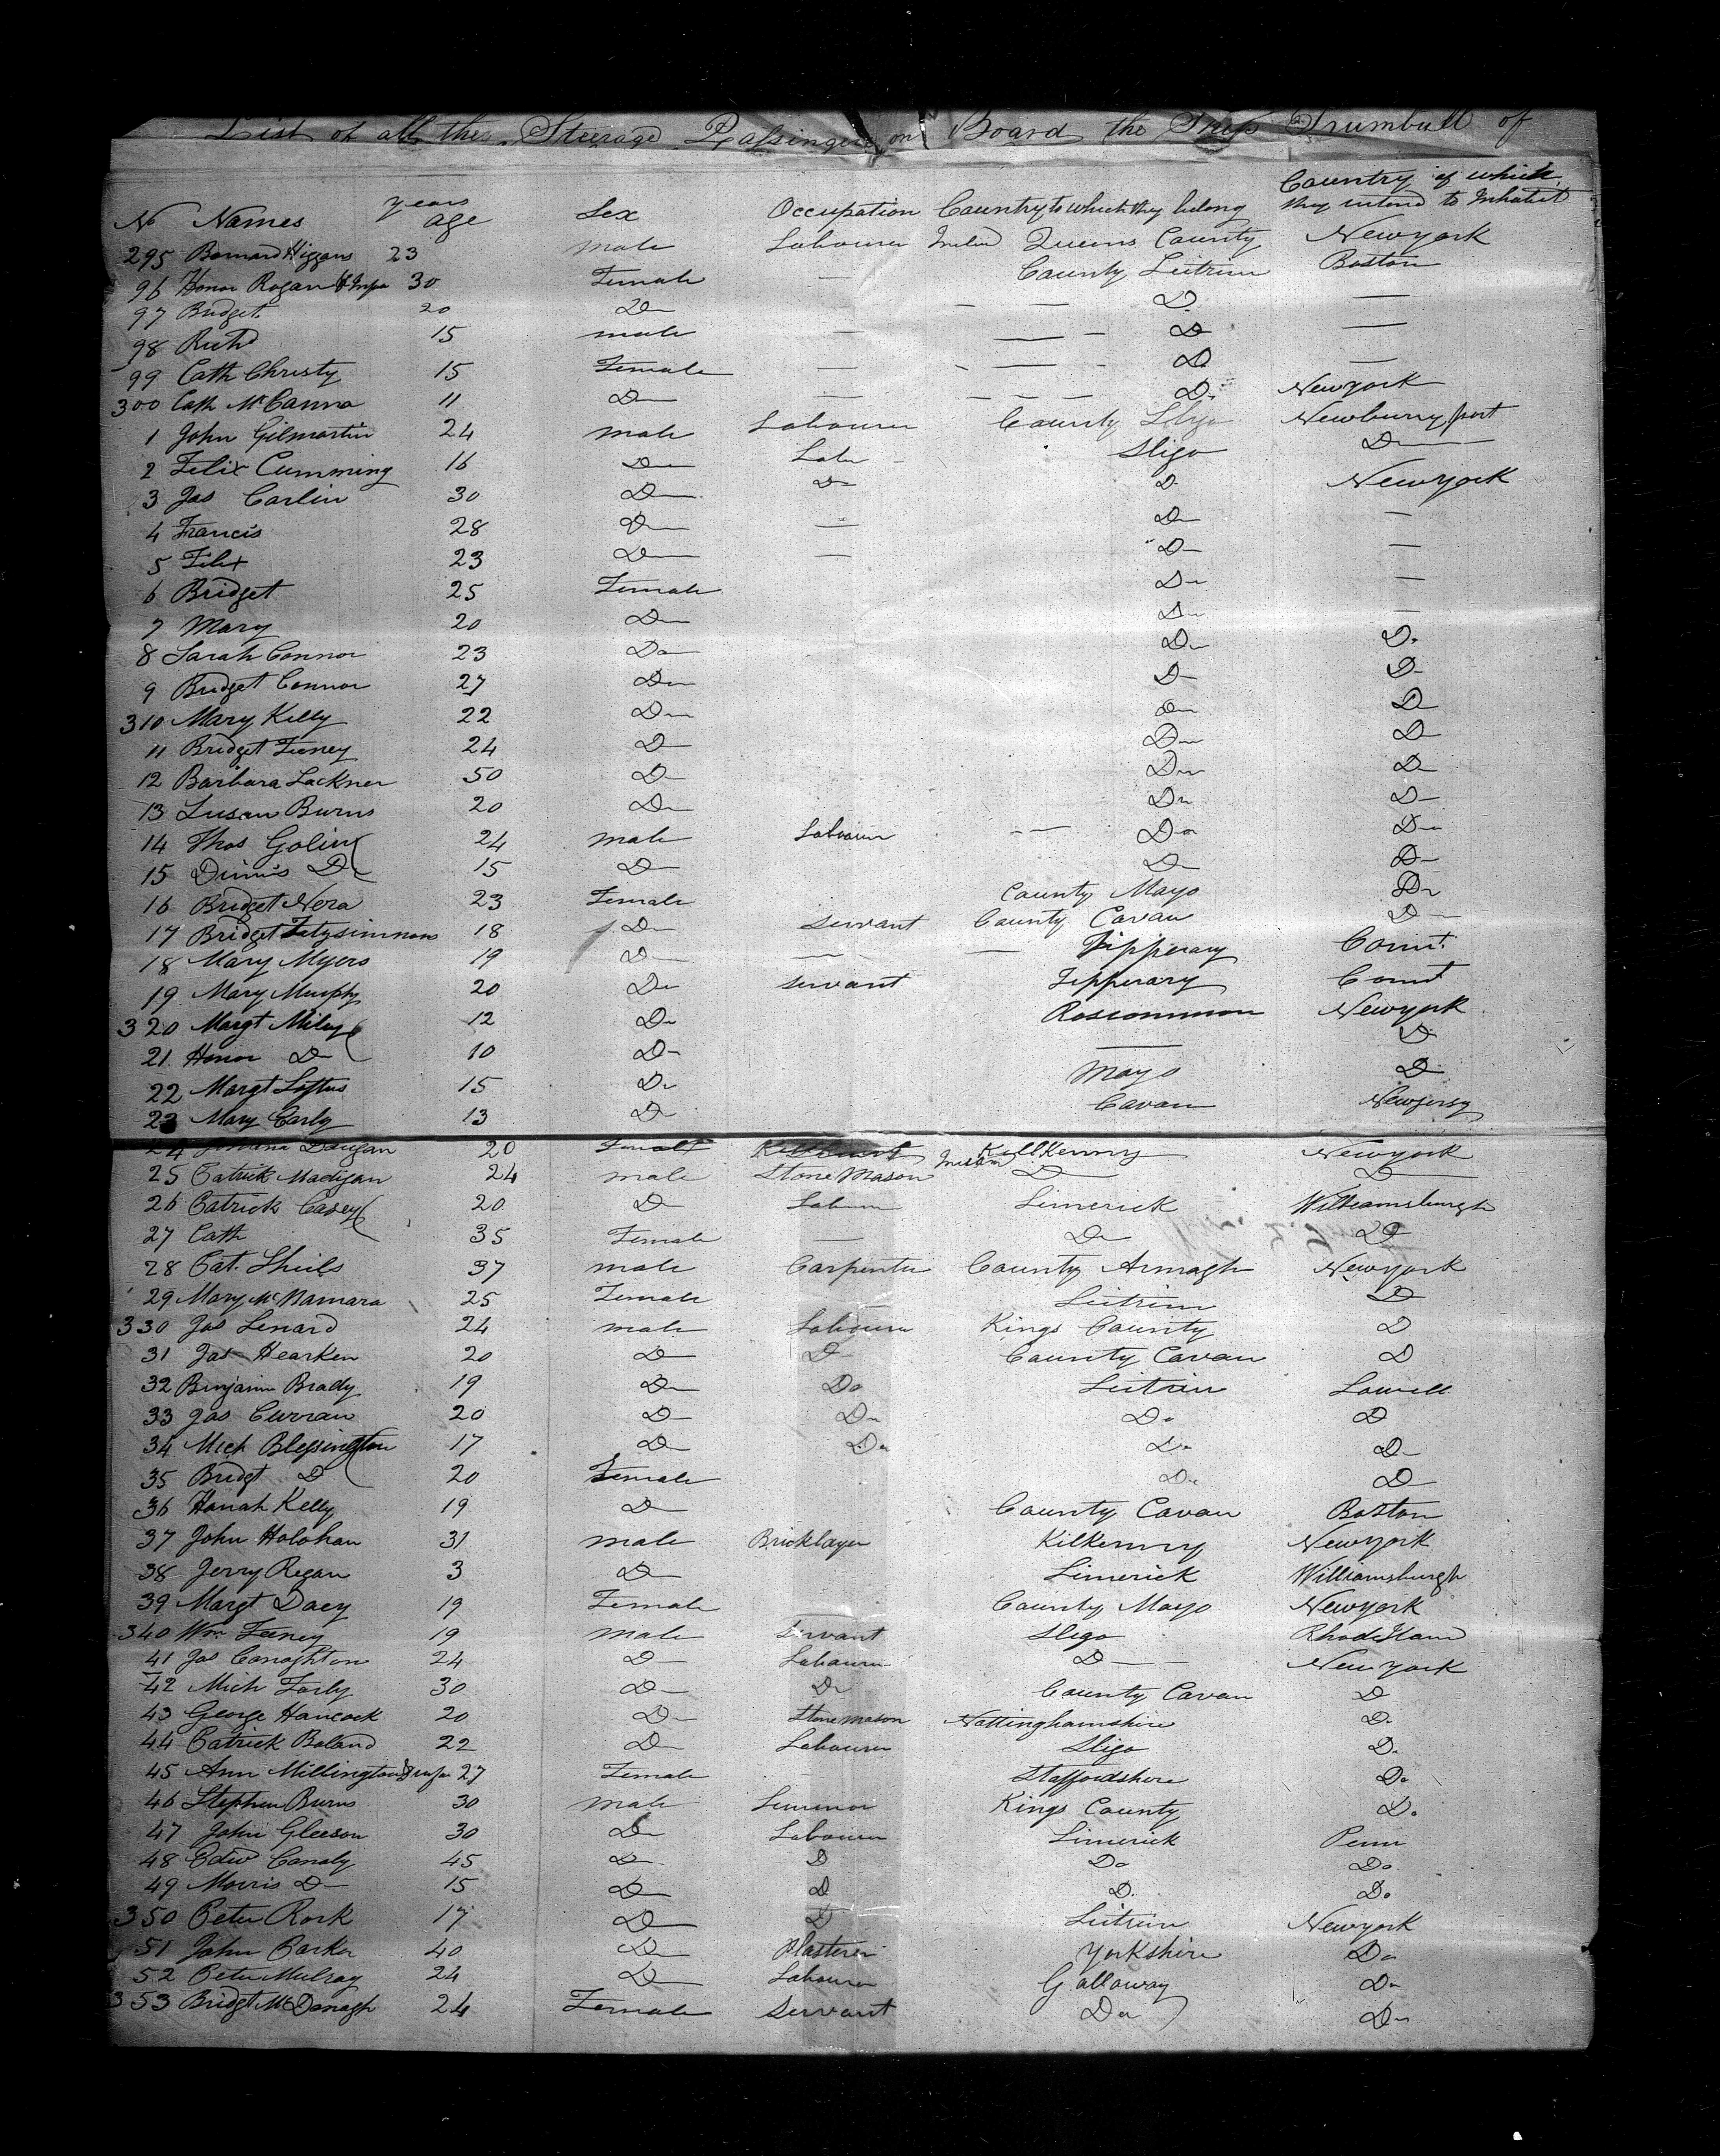 List of all the Steerage Passingers on Board the Ship Trumbull of
No Names years age Sex Occupation Country to which they belong Country of which they intend to Inhabit
295 Barnard Higgans 23 male Labourer Ireland Queens County Newyork
96 Honor Rogan & Infa 30 Female — County Leitrim Boston
97 Bridget 20 Do — — Do —
98 Richd 15 male — — — Do —
99 Cath Christy 15 Female — — — Do —
300 Cath McCanna 11 Do — — — — Do Newyork
1 John Gilmartin 24 male Labourer County Sligo Newburryport
2 Felix Cumming 16 Do Labr Sligo Do
3 Jas Carlin 30 Do Do Do Newyork
4 Francis 28 Do — Do —
5 Felix 23 Do — Do —
6 Bridget 25 Female Do —
7 Mary 20 Do Do —
8 Sarah Connor 23 Do Do Do
9 Bridget Connor 27 Do Do Do
310 Mary Kelly 22 Do Do Do
11 Bridget Feeney 24 Do Do Do
12 Barbara Lackner 50 Do Do Do
13 Susan Burns 20 Do Do Do
14 Thos Golin 24 male Labourer — Do Do
15 Dinnis Do 15 Do Do Do
16 Bridget Nera 23 Female County Mayo Do
17 Bridget Fitzsimmons 18 Do servant County Cavan Do
18 Mary Myers 19 Do — — Tipperary Connt
19 Mary Murphy 20 Do servant Tipperary Connt
320 Margt Miley 12 Do Roscommon Newyork
21 Honor Do 10 Do — Do
22 Margt Loftus 15 Do Mayo Do
23 Mary Early 13 Do Cavan Newjersy
24 Dougan 20 Female KillKenny Newyork
25 Patrick Madigan 24 male Stone Mason Ireland Do Do
26 Patrick Casey 20 Do Labourer Limerick Williamsburgh
27 Cath 35 Female — Do Do
28 Pat. Shiels 37 male Carpenter County Armagh Newyork
29 Mary McNamara 25 Female Leitrim Do
330 Jas Lenard 24 male Labourer Kings County Do
31 Jas Hearken 20 Do Do County Cavan Do
32 Benjamin Brady 19 Do Do Leitrim Lowell
33 Jas Curran 20 Do Do Do Do
34 Mich Blessington 17 Do Do Do Do
35 Bridgt Do 20 Female Do Do
36 Hanah Kelly 19 Do County Cavan Boston
37 John Holohan 31 male Bricklayer Kilkenny Newyork
38 Jerry Regan 3 Do Limerick Williamsburgh
39 Margt Dacy 19 Female County Mayo Newyork
340 Wm Feeney 19 male servant Sligo Rhode Iland
41 Jas Conaghton 24 Do Labourer Do Newyork
42 Mich Farly 30 Do Do County Cavan Do
43 George Hancock 20 Do Stone Mason Nottinghamshire Do
44 Patrick Boland 22 Do Labourer Sligo Do
45 Ann Millington & infa 27 Female Staffordshire Do
46 Stephen Burns 30 male Kings County Do
47 John Gleeson 30 Do Labourer Limerick Penn
48 Edwd Canaly 45 Do Do Do Do
49 Morris Do 15 Do Do Do Do
350 Peter Rork 17 Do Do Leitrim Newyork
51 John Parker 40 Do Plasterer Yorkshire Do
52 Peter Mulray 24 Do Labourer Gallaway Do
353 Bridgt McDonagh 24 Female Servant Do Do